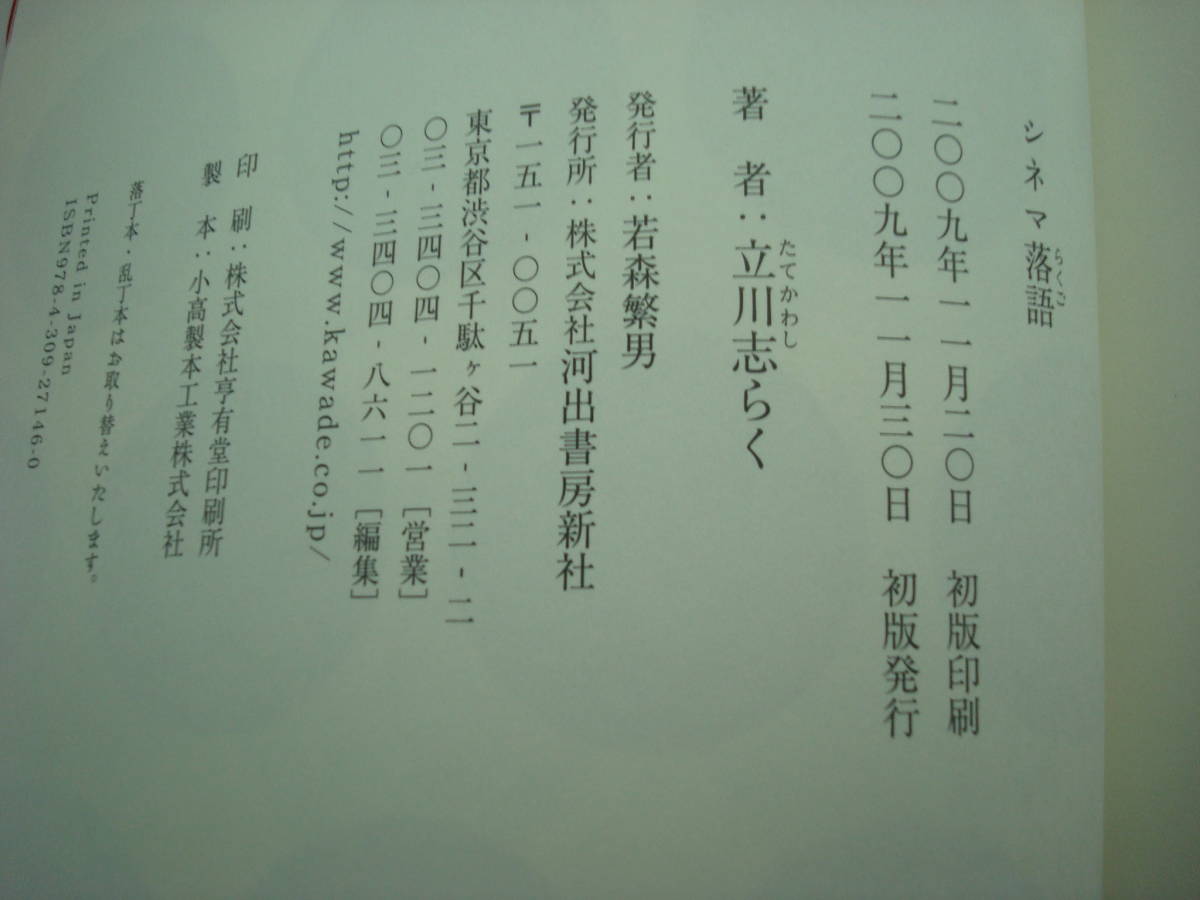 シネマ落語
らくご
二〇〇九年一一月二〇日　初版印刷
二〇〇九年一一月三〇日　初版発行
著　者：立川志らく
たてかわし
発行者：若森繁男
発行所：株式会社河出書房新社
〒一五一-〇〇五一
東京都渋谷区千駄ヶ谷二-三二-二
〇三-三四〇四-一二〇一［営業］
〇三-三四〇四-八六一一［編集］
http://www.kawade.co.jp/
印　刷：株式会社亨有堂印刷所
製　本：小高製本工業株式会社
落丁本・乱丁本はお取り替えいたします。
Printed in Japan
ISBN978-4-309-27146-0